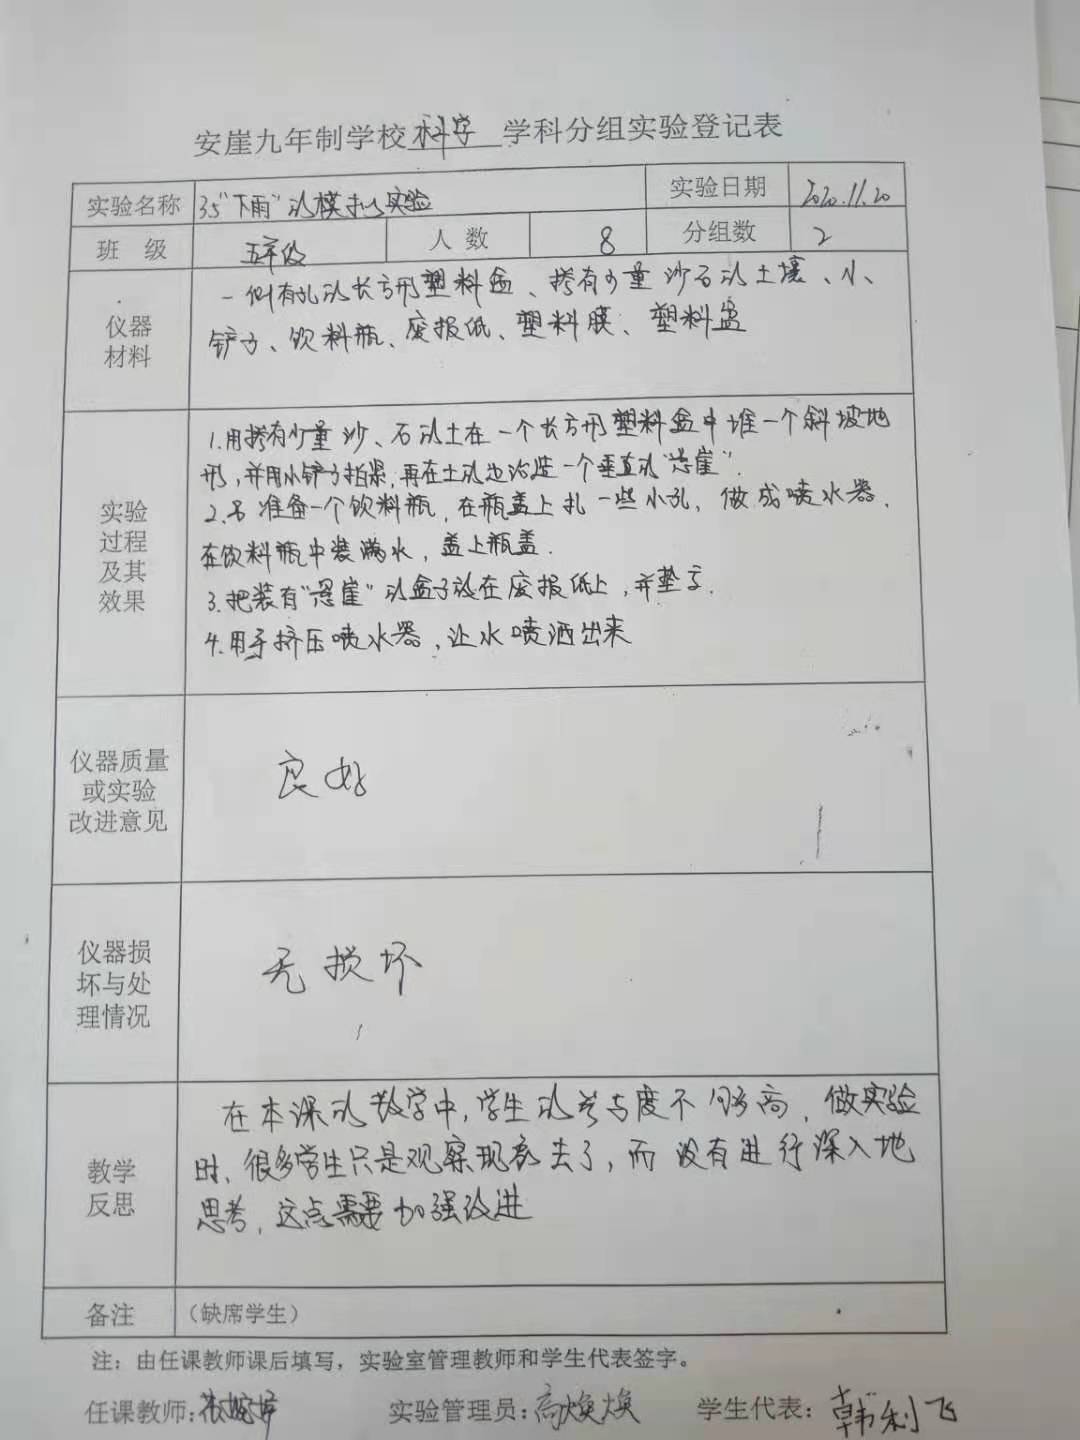 安崖九年制学校科学学科分组实验登记表
实验名称 35"下雨"的模拟实验 实验日期 2020.11.20
班 级 五年级 人 数 8 分组数 2
仪器材料
一侧有孔的长方形塑料盒、搀有少量沙石的土壤、小
铲子、饮料瓶、废报纸、塑料膜、塑料盆
实验过程及其效果
1.用搀有少量沙、石的土在一个长方形塑料盒中堆一个斜坡地
形,并用小铲子拍紧,再在土的边沿造一个垂直的"悬崖".
2.另准备一个饮料瓶,在瓶盖上扎一些小孔,做成喷水器.
在饮料瓶中装满水,盖上瓶盖.
3.把装有"悬崖"的盒子放在废报纸上,并垫
4.用手挤压喷水器,让水喷洒出来
仪器质量或实验改进意见
良好
仪器损坏与处理情况
无损坏
教学反思
在本课的教学中,学生的参与度不够高,做实验
时,很多学生只是观察现象去了,而没有进行深入地
思考,这点需要加强改进
备注 (缺席学生)
注:由任课教师课后填写,实验室管理教师和学生代表签字。
任课教师: 实验管理员:高焕焕 学生代表:韩利飞